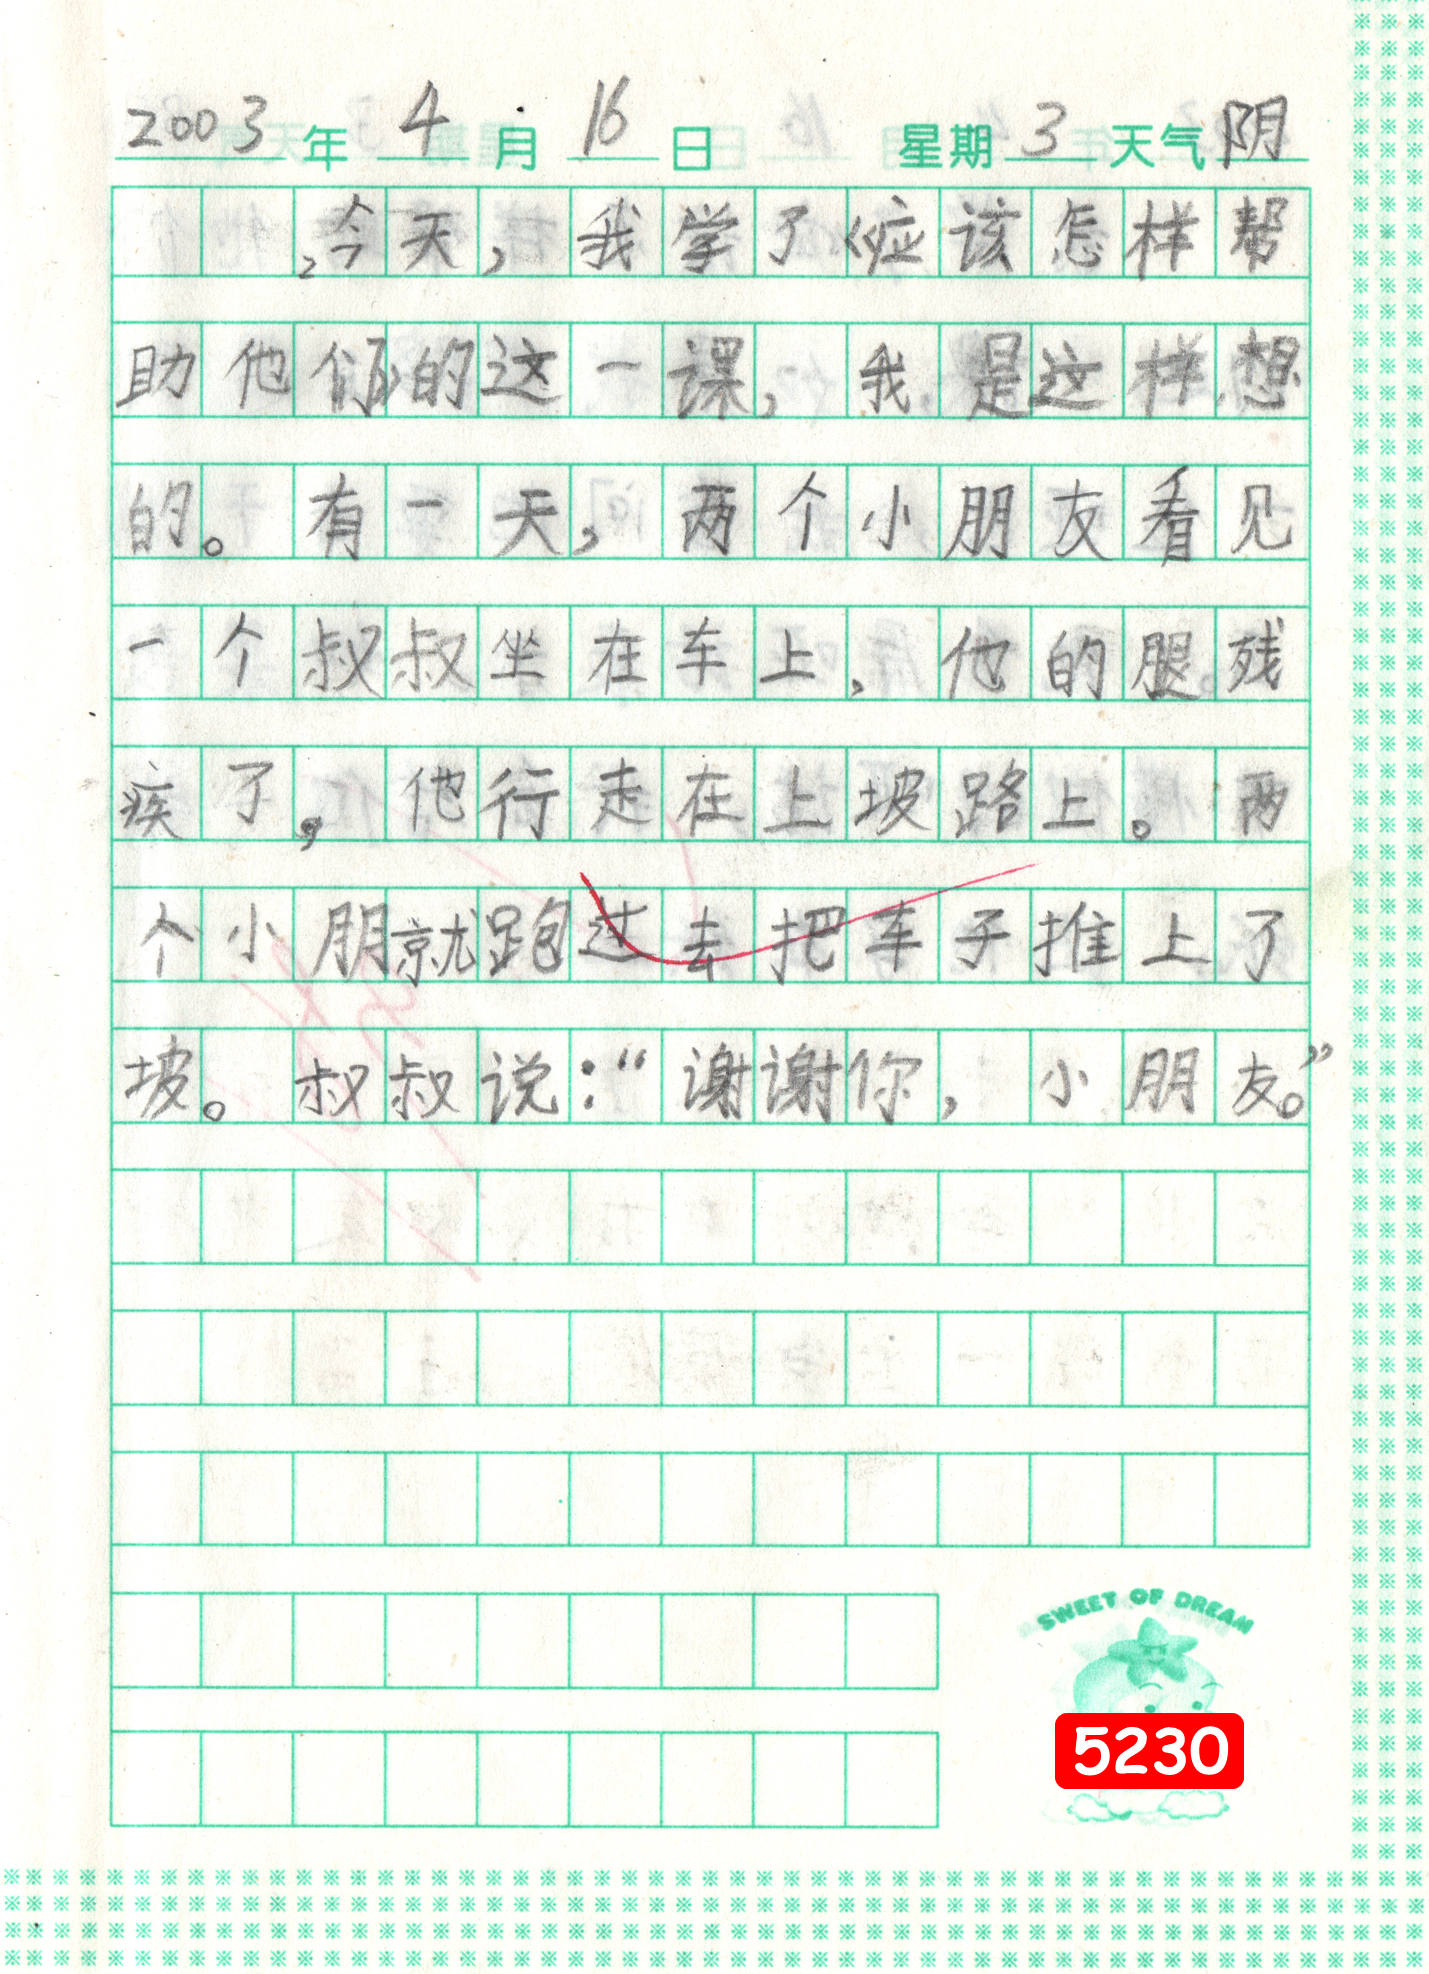 2003年4月16日 星期3天气阴
,今天，我学了《应该怎样帮
助他们》的这一课，我是这样想
的。有一天，两个小朋友看见
一个叔叔坐在车上，他的腿残
疾了，他行走在上坡路上。两
个小朋就跑过去把车子推上了
坡。叔叔说：“谢谢你，小朋友。”
SWEET OF DREAM
5230